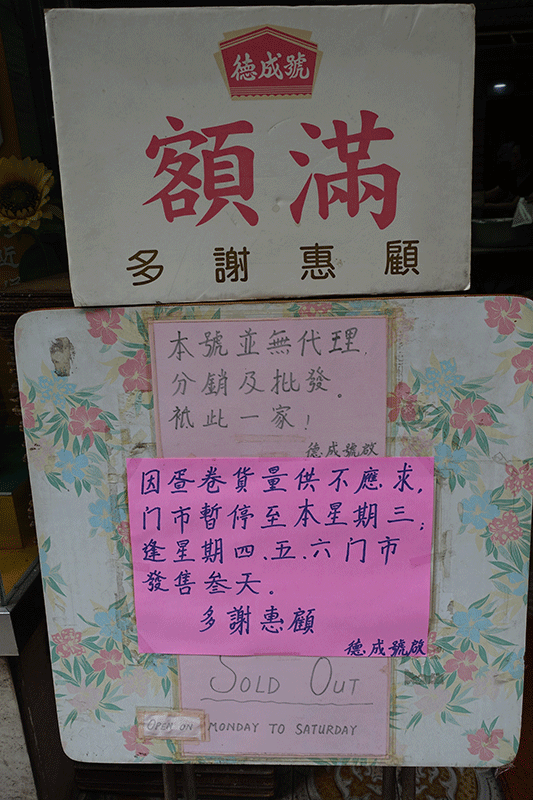 德成號
額滿
多謝惠顧
本號並無代理,
分銷及批發。
祗此一家!
德成號啟
因蛋卷貨量供不應求,
门市暫停至本星期三;
逢星期四、五、六门市
發售叁天。
多謝惠顧
德成號啟
SOLD OUT
OPEN ON MONDAY TO SATURDAY